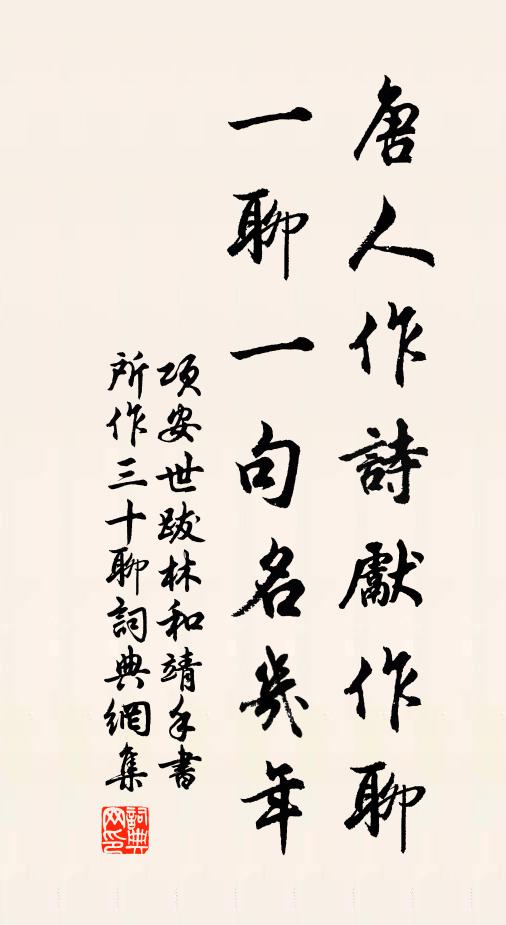 唐人作詩獻作聊
一聊一句名幾年
項安世跋林和靖手書
所作三十聊詞典網集
詞典网印